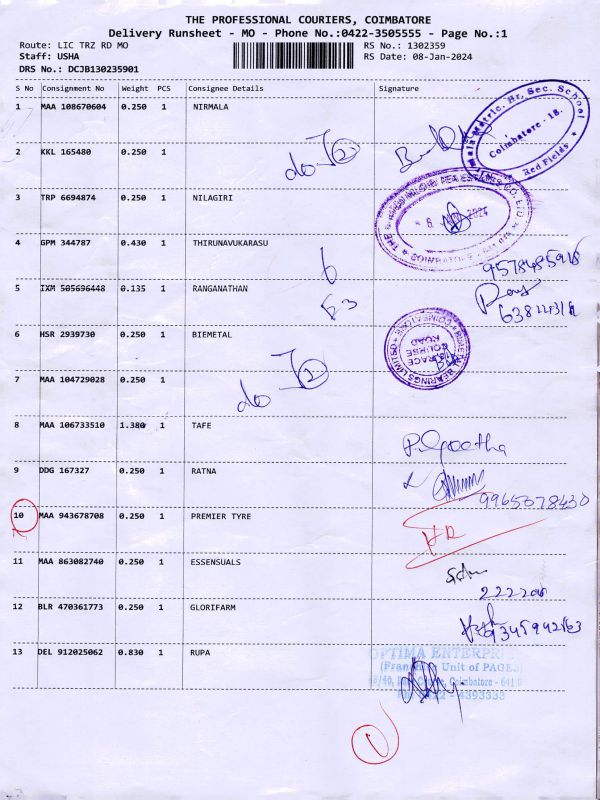 THE PROFESSIONAL COURIERS, COIMBATORE
Delivery Runsheet - MO - Phone No.:0422-3505555 - Page No.:1
Route: LIC TRZ RD MO RS No.: 1302359
Staff: USHA RS Date: 08-Jan-2024
DRS No.: DCJB130235901
S No Consignment No Weight PCS Consignee Details Signature
1 MAA 108670604 0.250 1 NIRMALA
Coimbatore - 18.
Red Fields
2 KKL 165480 0.250 1
do
3 TRP 6694874 0.250 1 NILAGIRI
2024
4 GPM 344787 0.430 1 THIRUNAVUKARASU
5 IXM 505696448 0.135 1 RANGANATHAN
6 HSR 2939730 0.250 1 BIEMETAL
BEARINGS LIMITED
RACE
COURSE
ROAD
7 MAA 104729028 0.250 1
do
8 MAA 106733510 1.380 1 TAFE
P. Geetha
9 DDG 167327 0.250 1 RATNA
9965078430
10 MAA 943678708 0.250 1 PREMIER TYRE
11 MAA 863082740 0.250 1 ESSENSUALS
12 BLR 470361773 0.250 1 GLORIFARM
9345942863
13 DEL 912025062 0.830 1 RUPA
OPTIMA ENTERPRI
Unit of PAGES
Coimbatore - 641
4393333
1